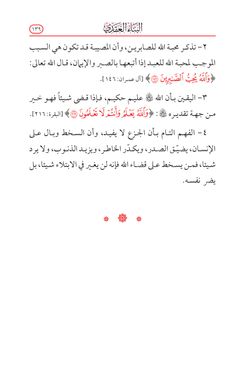 البناء العقدي
١٣٩
٢- تذكر محبة الله للصابرين، وأن المصيبة قد تكون هي السبب
الموجب لمحبة الله للعبد إذا أتبعها بالصبر والإيمان، قال الله تعالى:
﴿وَاللَّهُ يُحِبُّ الصَّابِرِينَ ۝﴾ [آل عمران: ١٤٦].
٣- اليقين بأن الله ﷻ عليم حكيم، فإذا قضى شيئاً فهو خير
من جهة تقديره ﷻ: ﴿وَاللَّهُ يَعْلَمُ وَأَنتُمْ لَا تَعْلَمُونَ ۝﴾ [البقرة: ٢١٦].
٤- الفهم التام بأن الجزع لا يفيد، وأن السخط وبال على
الإنسان، يضيّق الصدر، ويكدّر الخاطر، ويزيد الذنوب، ولا يرد
شيئا، فمن يسخط على قضاء الله فإنه لن يغير في الابتلاء شيئا، بل
يضر نفسه.